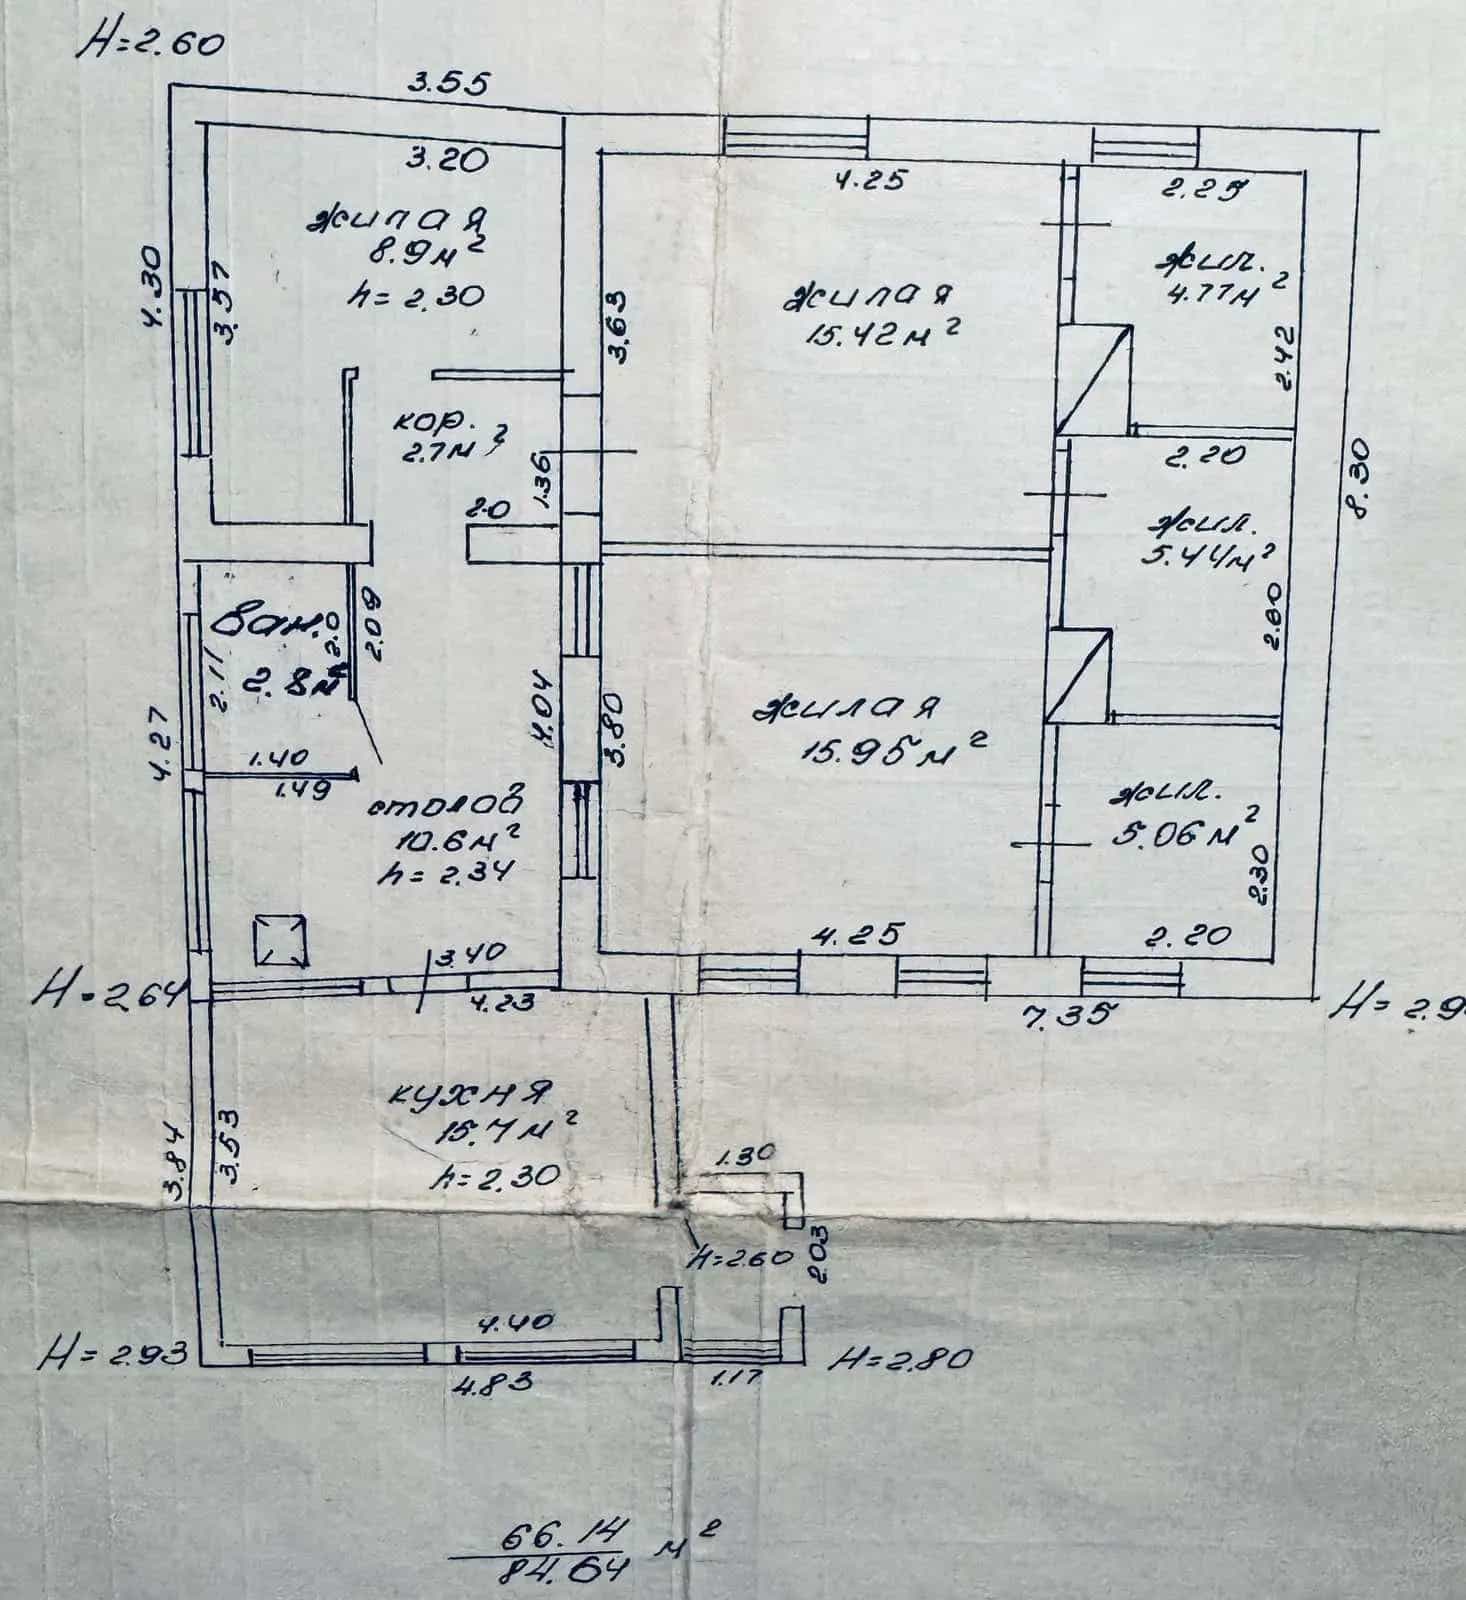 H=2.60
3.55
3.20
жилая
8.9м²
h=2.30
4.30
3.57
4.25
2.25
жилая
15.42м²
3.63
жил.
4.77м²
2.42
кор.
2.7м²
1.36
2.0
2.20
жил.
5.44м²
2.60
8.30
Ван.
2.8м²
2.0
2.09
2.11
1.40
1.49
4.27
4.04
3.80
жилая
15.95м²
жил.
5.06м²
2.30
столов
10.6м²
h=2.34
3.40
4.23
4.25
2.20
H=2.64
7.35
H=2.9
кухня
15.7м²
h=2.30
3.84
3.53
1.30
H=2.60
2.03
4.40
4.83
1.17
H=2.93
H=2.80
66.14
84.64 м²